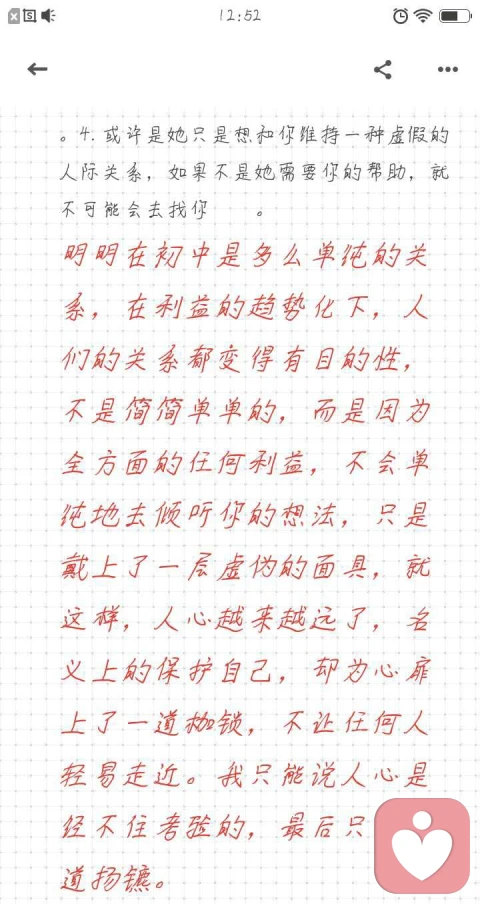 12:52
。4. 或许是她只是想和你维持一种虚假的
人际关系，如果不是她需要你的帮助，就
不可能会去找你 。
明明在初中是多么单纯的关
系，在利益的趋势化下，人
们的关系都变得有目的性，
不是简简单单的，而是因为
全方面的任何利益，不会单
纯地去倾听你的想法，只是
戴上了一层虚伪的面具，就
这样，人心越来越远了，名
义上的保护自己，却为心扉
上了一道枷锁，不让任何人
轻易走近。我只能说人心是
经不住考验的，最后只
道扬镳。